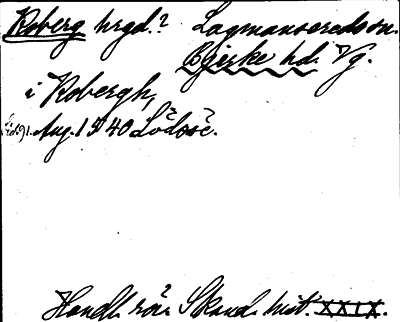 Roberg hrgd.? Lagmansereds sn.
Bjerke hd. Vg.
i Robergh,
Aug. 1540 Lödose.
Handl. rör. Skand. hist. XXIX.